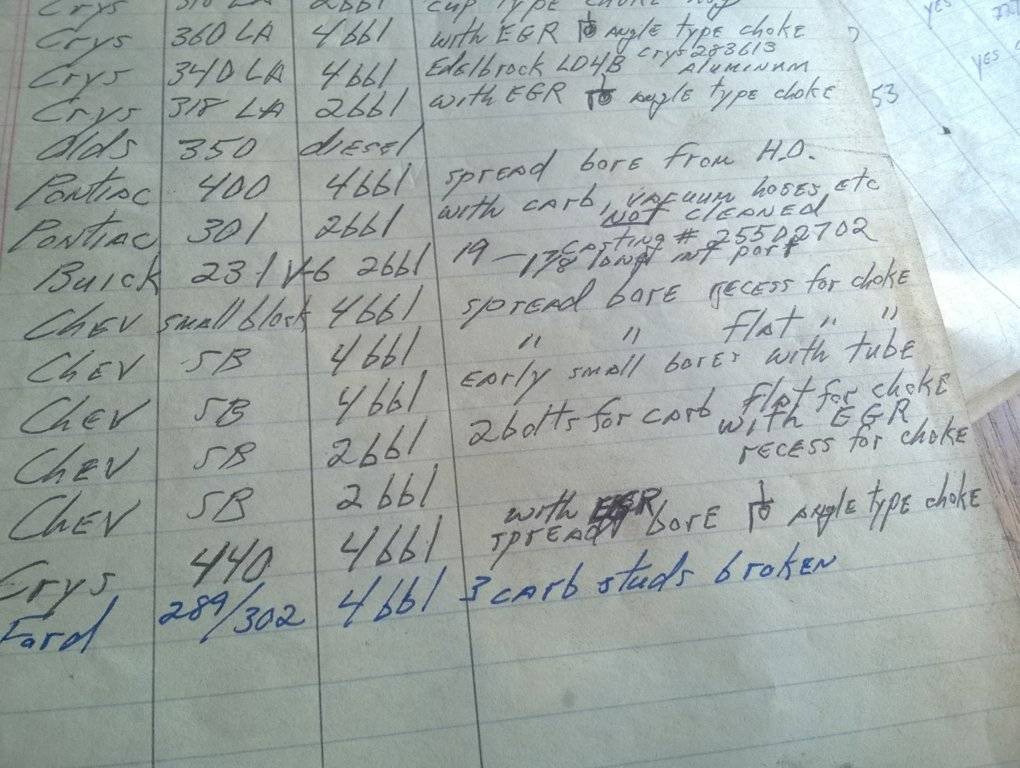 Crys 318 LA 2bbl cup type choke
Crys 360 LA 4bbl with EGR angle type choke
Crys 340 LA 4bbl Edelbrock LD4B Crys 283613 Aluminum
Crys 318 LA 2bbl with EGR angle type choke 53
Olds 350 diesel
Pontiac 400 4bbl spread bore from H.O.
Pontiac 301 2bbl with carb, vacuum hoses, etc
NOT CLEANED
Buick 231 V-6 2bbl 19 casting # 25502702
1 7/8 int port
Chev small block 4bbl spread bore recess for choke
Chev SB 4bbl " " flat " "
Chev SB 4bbl Early small bores with tube
Chev SB 2bbl 2 bolts for carb flat for choke
with EGR
Chev SB 2bbl recess for choke
with EGR
Crys 440 4bbl spread bore angle type choke
Ford 289/302 4bbl 3 carb studs broken
yes
yes